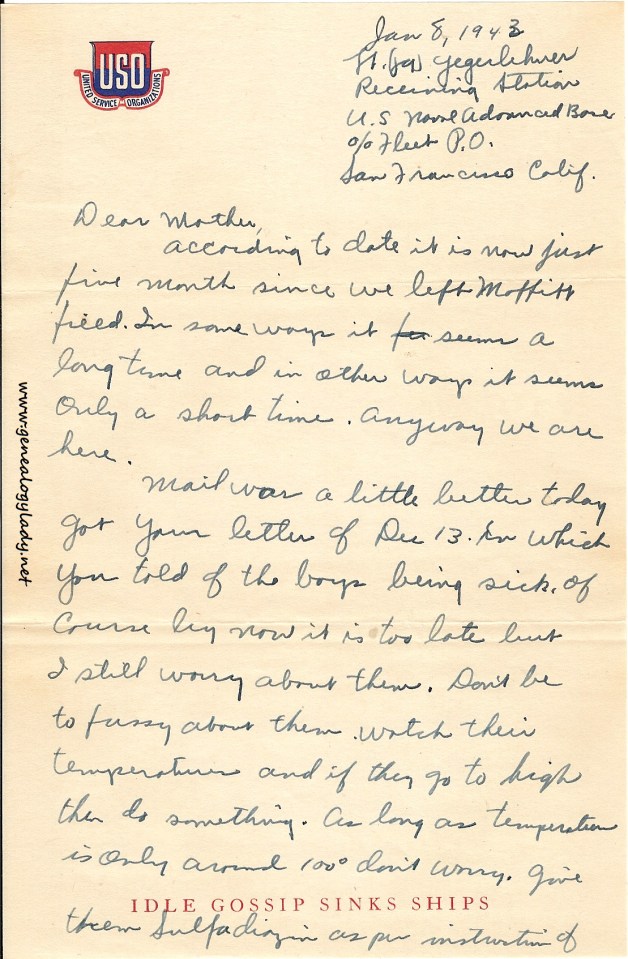 USO
UNITED SERVICE ORGANIZATIONS
Jan 8, 1943
Lt. (jg) Yegerlehner
Receiving Station
U.S Naval Advanced Base
c/o Fleet P.O.
San Francisco Calif.
Dear Mother,
According to date it is now just
five month since we left Moffitt
field. In some ways it seems a
long time and in other ways it seems
only a short time. Anyway we are
here.
Mail was a little better today
got your letter of Dec 13. In which
you told of the boys being sick. Of
course by now it is too late but
I still worry about them. Don't be
to fussy about them. Watch their
temperature and if they go to high
then do something. As long as temperature
is only around 100° don't worry. Give
IDLE GOSSIP SINKS SHIPS
them Sulfadiazin as per instruction of
www.genealogylady.net